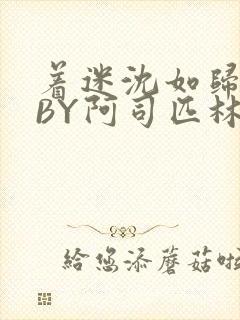 着迷沈如歸
BY阿司匹林
給您添蘑菇啦